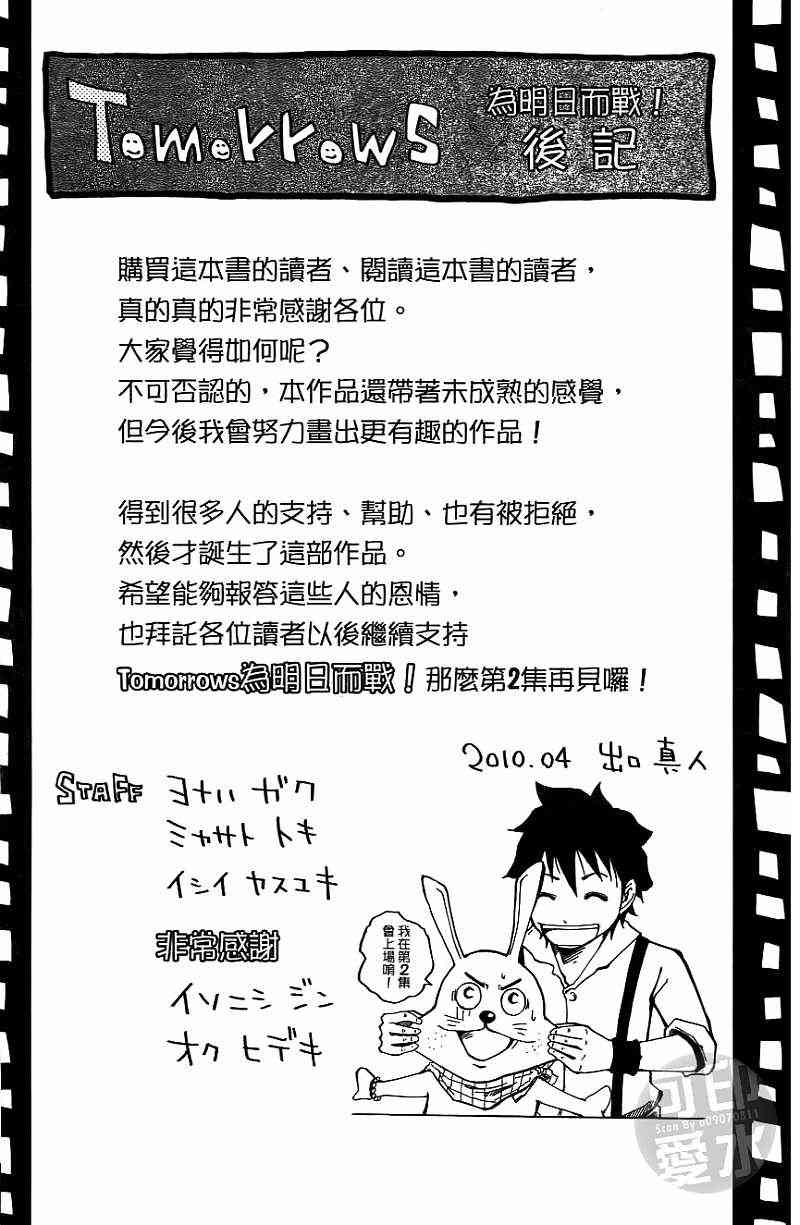 Tomorrows 為明日而戰！
後記
購買這本書的讀者、閱讀這本書的讀者，
真的真的非常感謝各位。
大家覺得如何呢？
不可否認的，本作品還帶著未成熟的感覺，
但今後我會努力畫出更有趣的作品！
得到很多人的支持、幫助、也有被拒絕，
然後才誕生了這部作品。
希望能夠報答這些人的恩情，
也拜託各位讀者以後繼續支持
Tomorrows為明日而戰！那麼第2集再見囉！
2010.04 出口 真人
STAFF ヨナハ ガク
ミヤサト トキ
イシイ ヤスユキ
非常感謝
イソニシ ジン
オク ヒデキ
我在第2集
會上場唷！
可印
Scan By a09070811
愛水